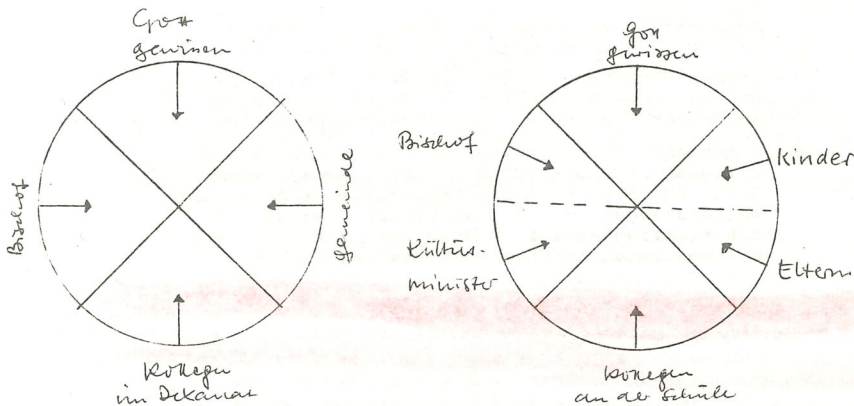 Gott
gewissen
Bischof
gemeinde
Kollegen
im Dekanat
Gott
gewissen
Bischof
Kinder
Kultus-
minister
Eltern
Kollegen
an der Schule